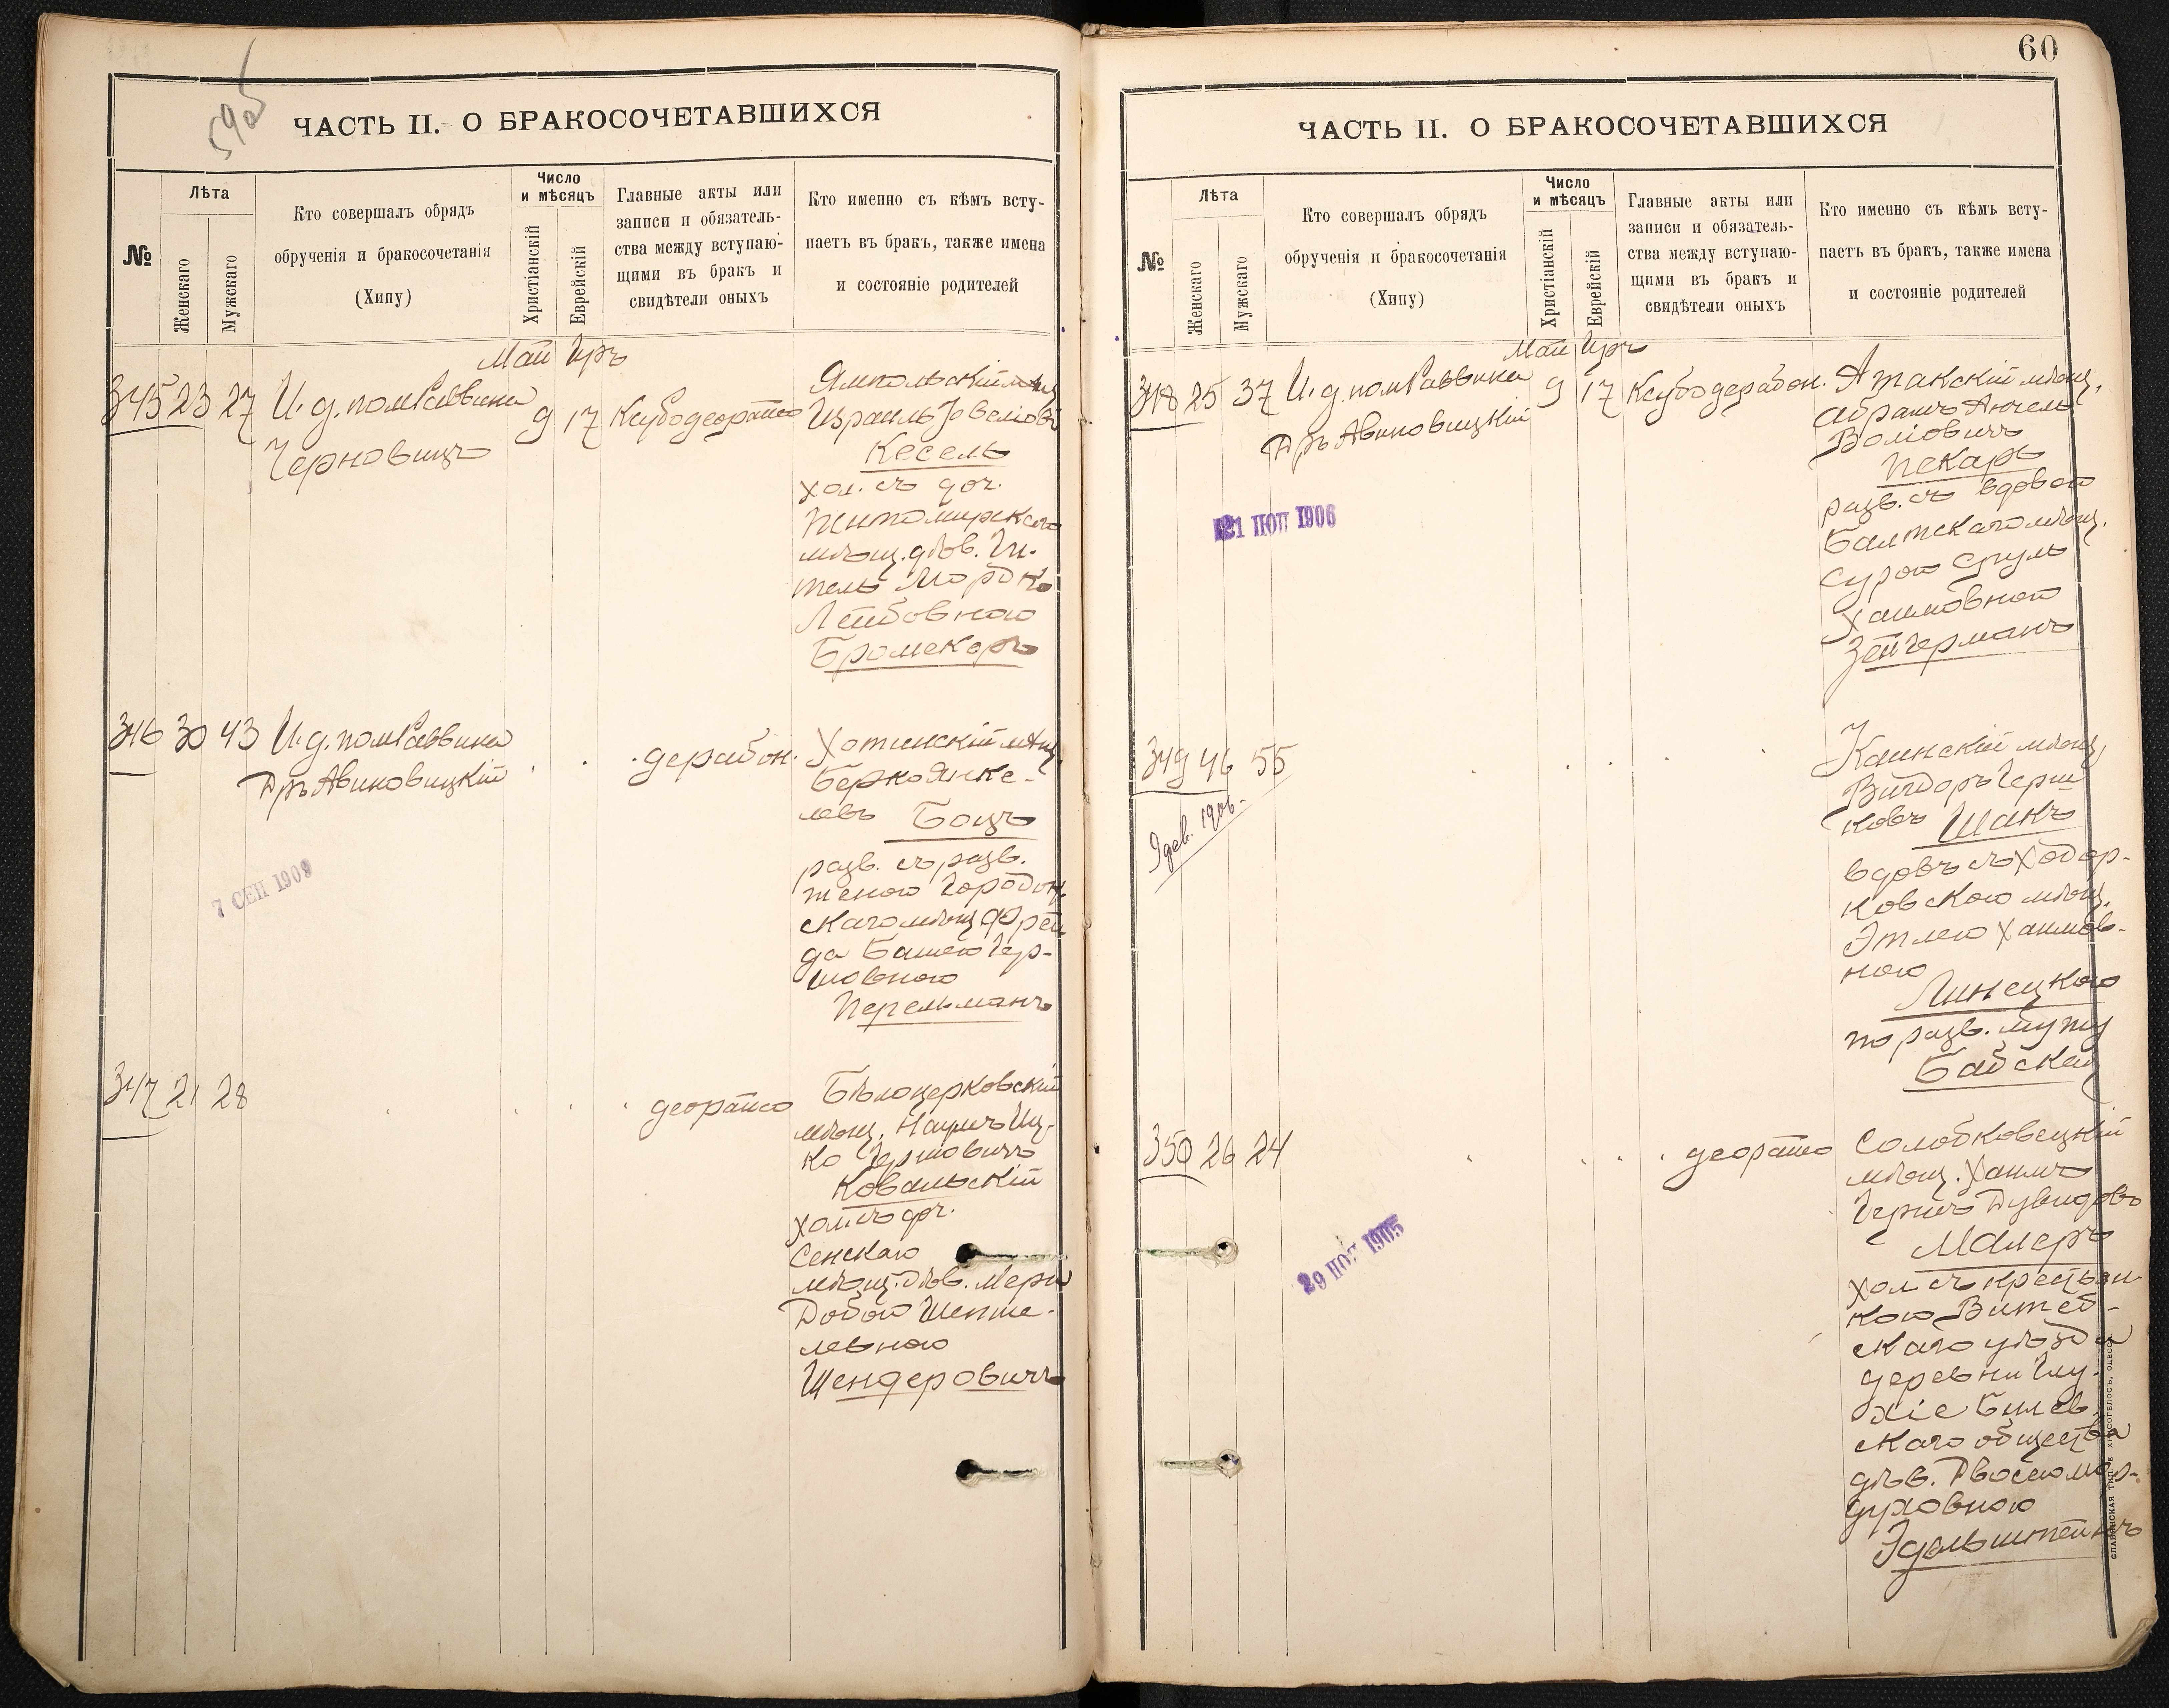 59об
ЧАСТЬ II. О БРАКОСОЧЕТАВШИХСЯ
№
Лѣта
Женскаго
Мужскаго
Кто совершалъ обрядъ
обрученія и бракосочетанія
(Хипу)
Число
и мѣсяцъ
Христіанскій
Еврейскій
Главные акты или
записи и обязатель-
ства между вступаю-
щими въ бракъ и
свидѣтели оныхъ
Кто именно съ кѣмъ всту-
паетъ въ бракъ, также имена
и состояніе родителей
Май Іръ
345 23 27 И. д. пом Раввина
Черновицъ
9 17 Ксубо деорайсо
Ямпольскій мѣщ
Израиль Іовеліовъ
Кесель
хол. съ доч.
Житомирскаго
мѣщ. дѣв. Ги-
тель Мордко
Лейбовною
Бромекеръ
346 30 43 И. д. пом Раввина
Дръ Авиновицкій
дерабон.
Хотинскій мѣщ.
Берко Янке-
левъ Боцъ
разв. съ разв.
женою Городок
скаго мѣщ Фрей
да Башею Гер-
шовною
Перельманъ
7 СЕН 1909
347 21 28
деорайсо
Бѣлоцерковскій
мѣщ. Наумъ Иц-
ко Гершовичъ
Ковальскій
хол. съ доч.
Сенскаго
мѣщ. дѣв. Мери
Добою Шепше-
левною
Шендеровичъ
60
ЧАСТЬ II. О БРАКОСОЧЕТАВШИХСЯ
№
Лѣта
Женскаго
Мужскаго
Кто совершалъ обрядъ
обрученія и бракосочетанія
(Хипу)
Число
и мѣсяцъ
Христіанскій
Еврейскій
Главные акты или
записи и обязатель-
ства между вступаю-
щими въ бракъ и
свидѣтели оныхъ
Кто именно съ кѣмъ всту-
паетъ въ бракъ, также имена
и состояніе родителей
Май Іръ
348 25 37 И. д. пом Раввина
Дръ Авиновицкій
9 17 Ксубо дерабон.
Атакскій мѣщ.
Абрамъ Анчель
Воліовичъ
Пекарь
разв. съ вдовою
Балтскаго мѣщ.
Сурою Сруль
Хаимовною
Зейгерманъ
21 1906
349 46 55
Каинскій мѣщ,
Вигдоръ Герш
ковъ Шакъ
вдовъ съ Ходор-
ковскою мѣщ.
Этлею Хаимов-
ною
Линецкою
по разв. мужу
Бабской
350 26 24
деорайсо
Солобковецкій
мѣщ. Хаимъ
Гершъ Дувидовъ
Малеръ
хол съ крестьян-
кою Витеб-
скаго уѣзда
деревни Глу-
хіе Билев.
скаго общества
дѣв. Двосею Мор-
духовною
Эдельштейнъ
29 НОЯ 1905
СЛАВЯНСКАЯ ТИП. Е. ХРИСОГЕЛОСЪ, ОДЕССА